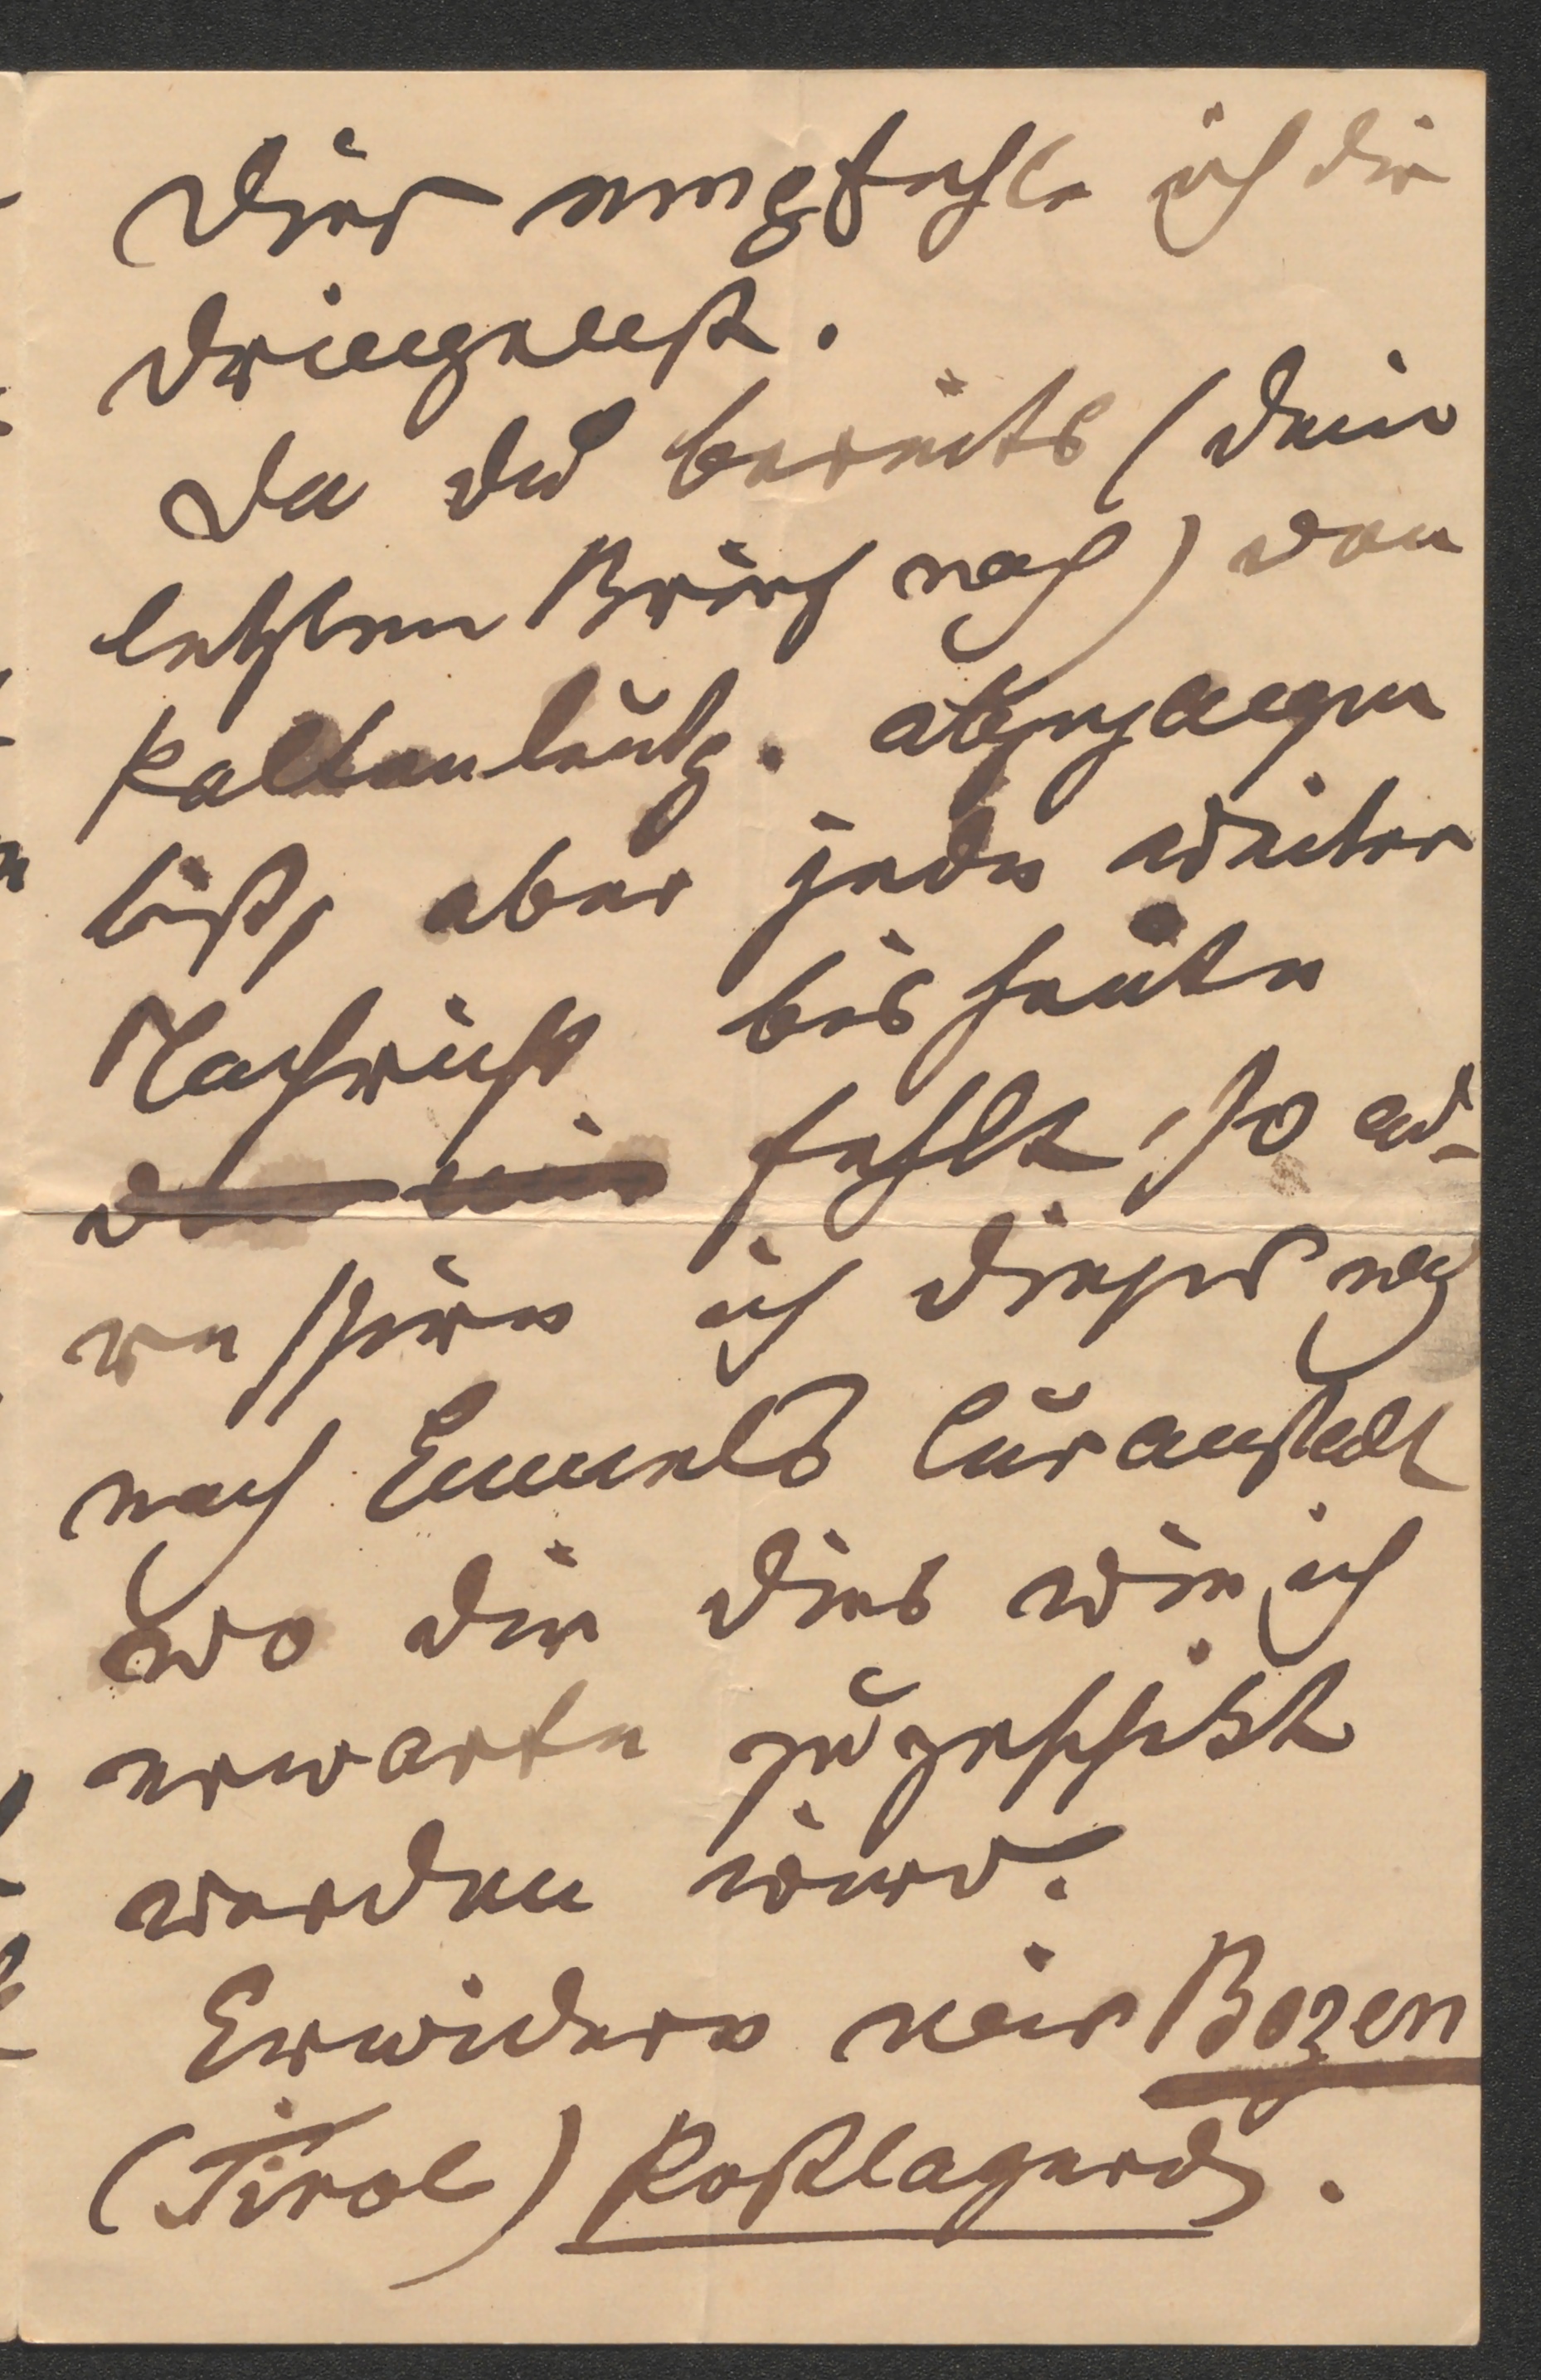 Dies empfehle ich dir
dringenst.
Da du bereits (dein
letzten Brief nach) von
Kaltenleutg. abgegangen
bist, aber jede weitere
Nachricht bis heute
fehlt, so ad-
ressire ich dieses
nach Emmels Curanstalt
wo dir dies wie ich
erwarte zugeschikt
werden wird.
Erwidere mir Bozen
(Tirol) Postlagernd.